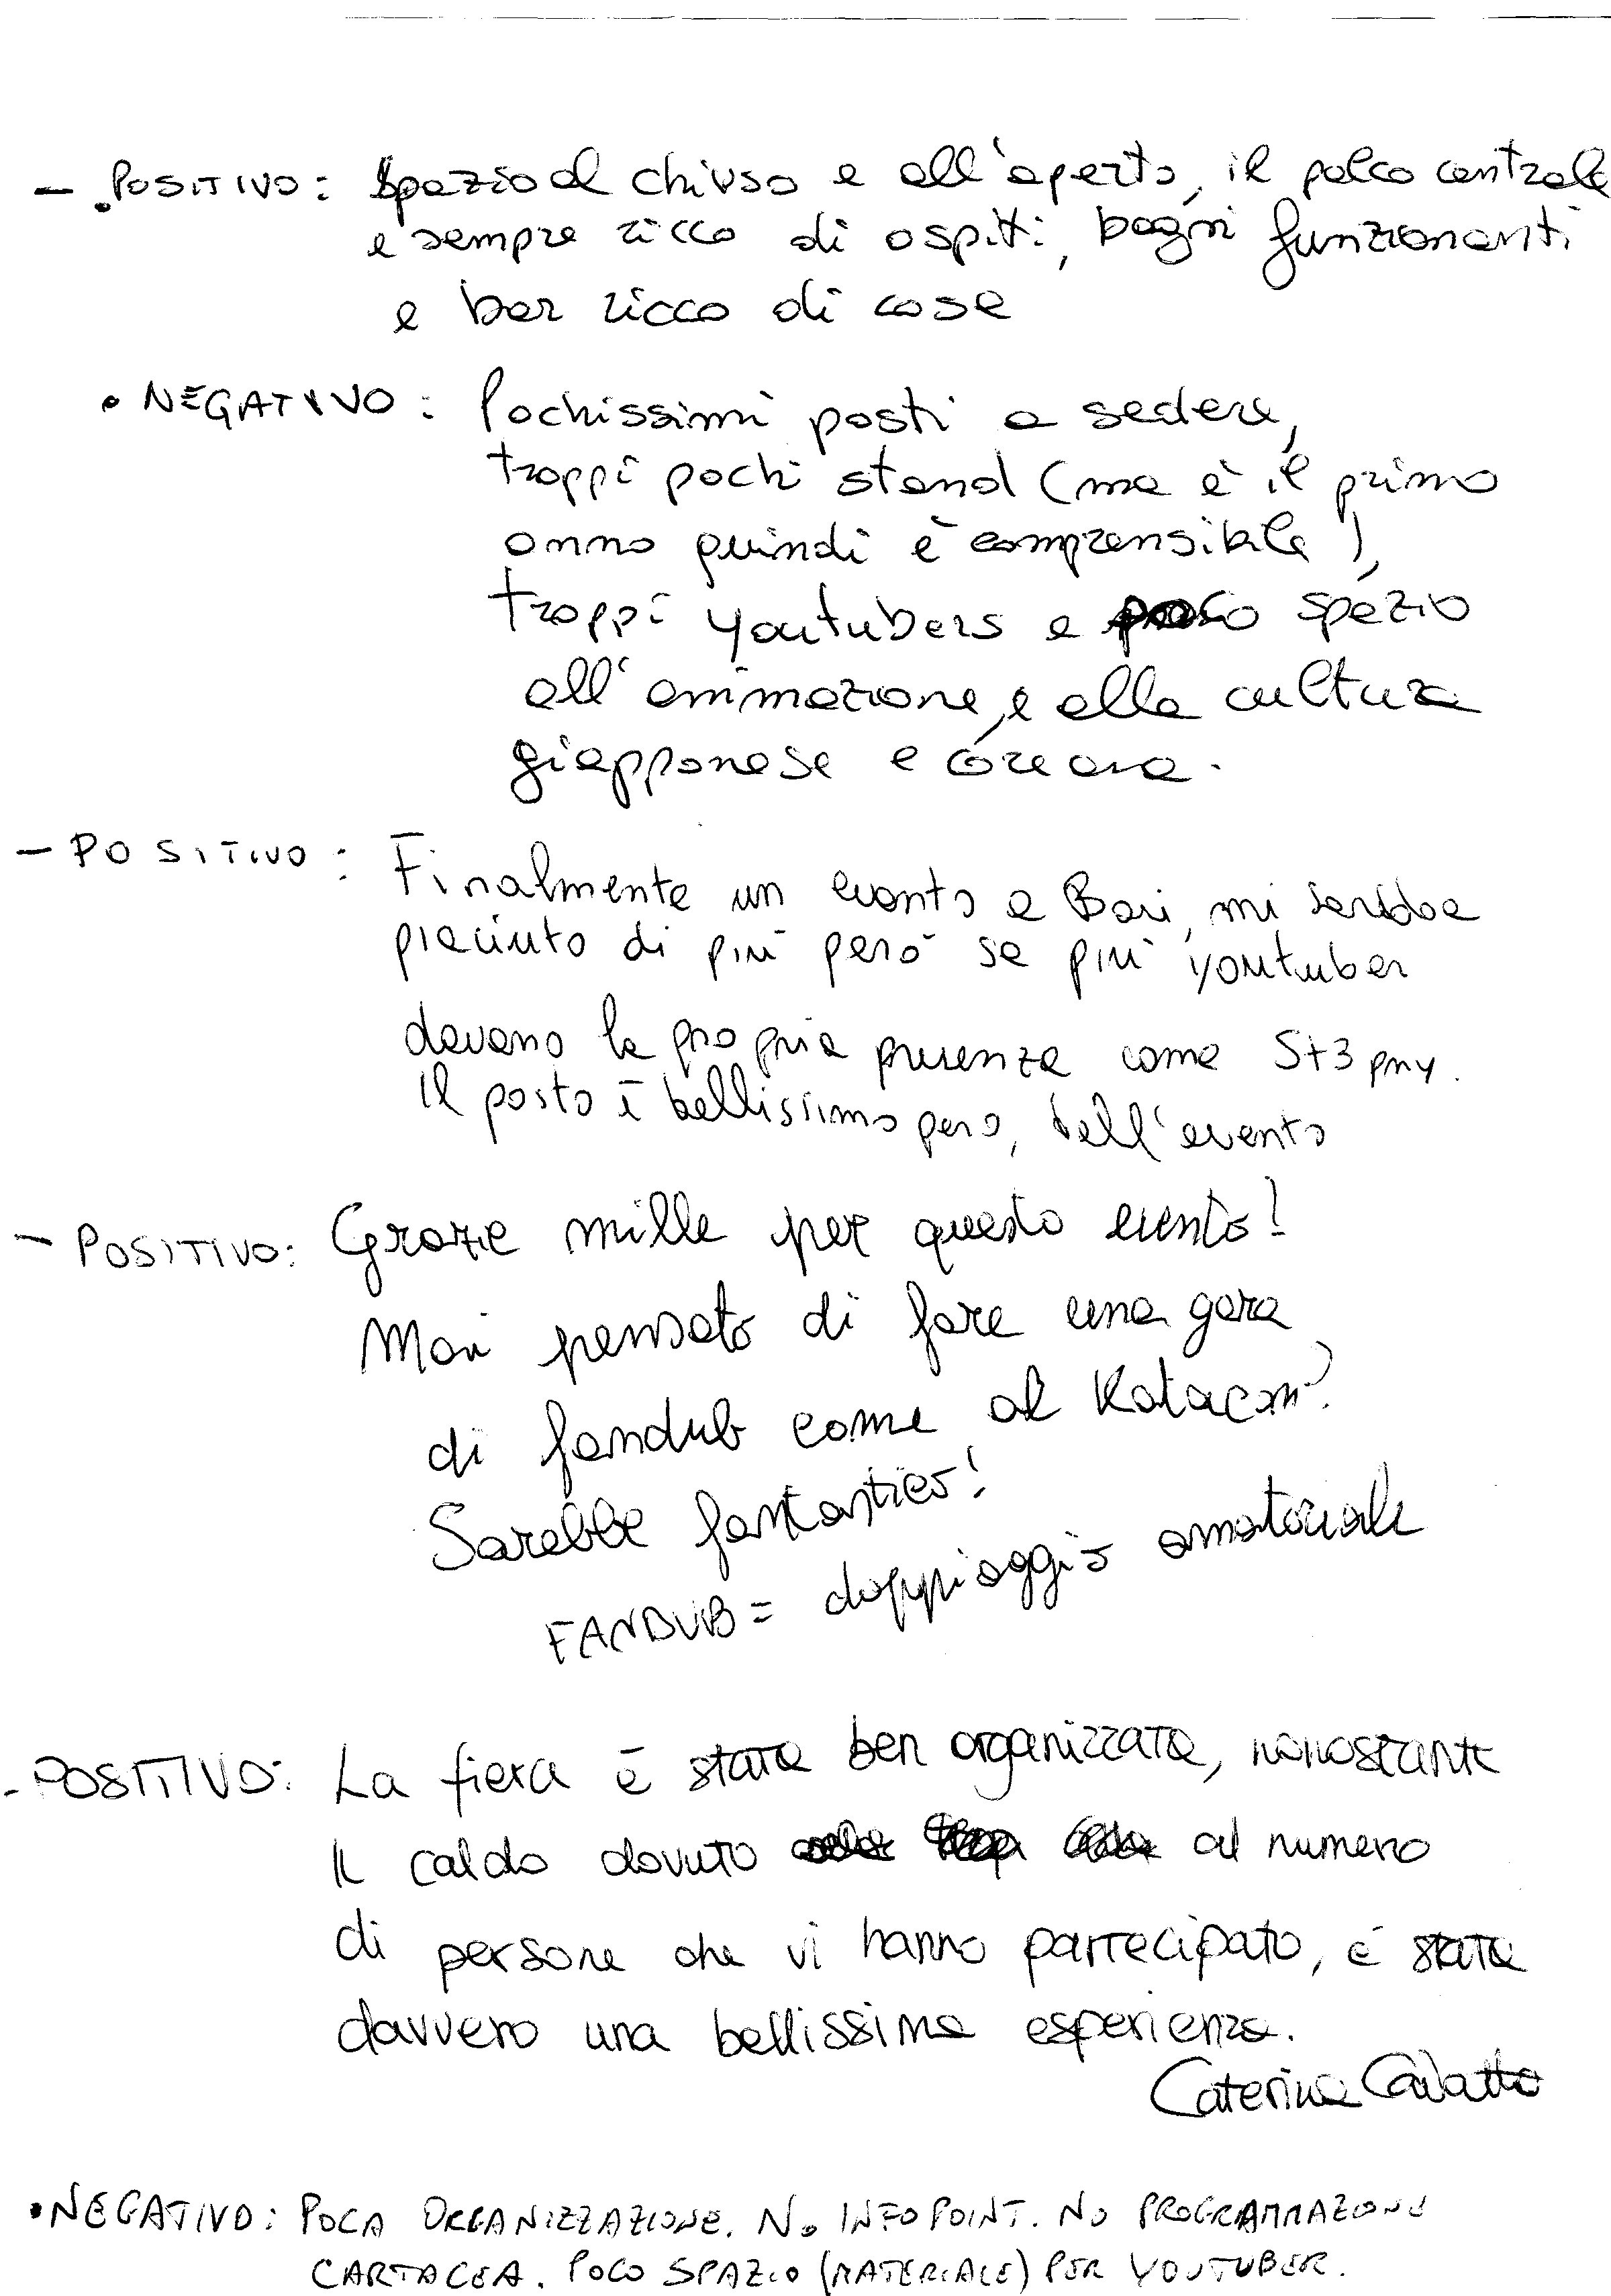 - POSITIVO: Spazio al chiuso e all'aperto, il palco centrale
e sempre ricco di ospiti, bagni funzionanti
e bar ricco di cose
• NEGATIVO: Pochissimi posti a sedere,
troppi pochi stand (ma è il primo
anno quindi è comprensibile),
troppi youtubers e poco spazio
all'animazione, e alla cultura
giapponese e coreana.
- POSITIVO: Finalmente un evento a Bari, mi sarebbe
piaciuto di più però se più youtuber
davano la propria presenza come St3pny.
Il posto è bellissimo però, dell'evento
- POSITIVO: Grazie mille per questo evento!
Mai pensato di fare una gara
di fandub come al Kotacon?
Sarebbe fantastico!
FANDUB = doppiaggio amatoriale
- POSITIVO: La fiera è stata ben organizzata, nonostante
il caldo dovuto al numero
di persone che vi hanno partecipato, è stata
davvero una bellissima esperienza.
Caterina
• NEGATIVO: POCA ORGANIZZAZIONE. NO INFOPOINT. NO PROGRAMMAZIONE
CARTACEA. POCO SPAZIO (MATERIALE) PER YOUTUBER.